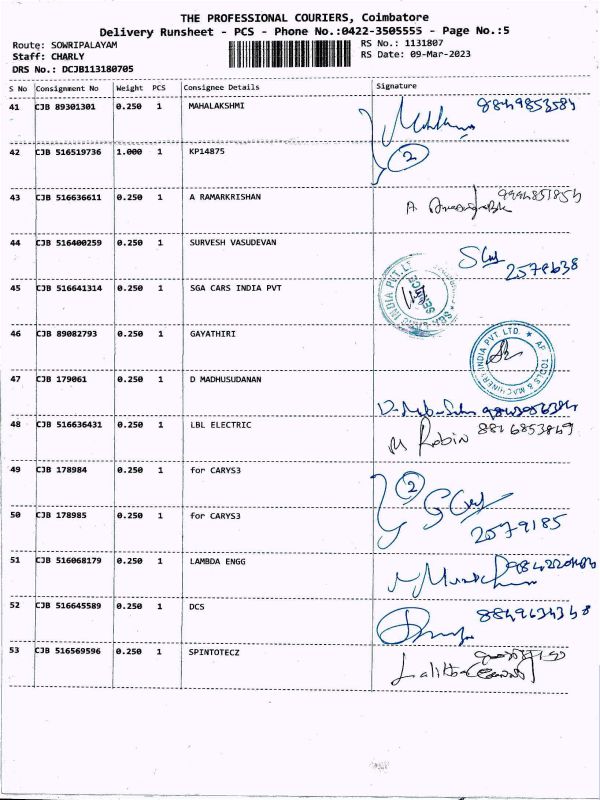 THE PROFESSIONAL COURIERS, Coimbatore
Delivery Runsheet - PCS - Phone No.:0422-3505555 - Page No.:5
Route: SOWRIPALAYAM
RS No.: 1131807
Staff: CHARLY
RS Date: 09-Mar-2023
DRS No.: DCJB113180705
S No Consignment No Weight PCS Consignee Details Signature
41 CJB 89301301 0.250 1 MAHALAKSHMI
42 CJB 516519736 1.000 1 KP14875 2
43 CJB 516636611 0.250 1 A RAMARKRISHAN
44 CJB 516400259 0.250 1 SURVESH VASUDEVAN
2578638
45 CJB 516641314 0.250 1 SGA CARS INDIA PVT
46 CJB 89082793 0.250 1 GAYATHIRI
47 CJB 179061 0.250 1 D MADHUSUDANAN
48 CJB 516636431 0.250 1 LBL ELECTRIC M Robin
49 CJB 178984 0.250 1 for CARYS3 2
50 CJB 178985 0.250 1 for CARYS3
2579185
51 CJB 516068179 0.250 1 LAMBDA ENGG
52 CJB 516645589 0.250 1 DCS
53 CJB 516569596 0.250 1 SPINTOTECZ